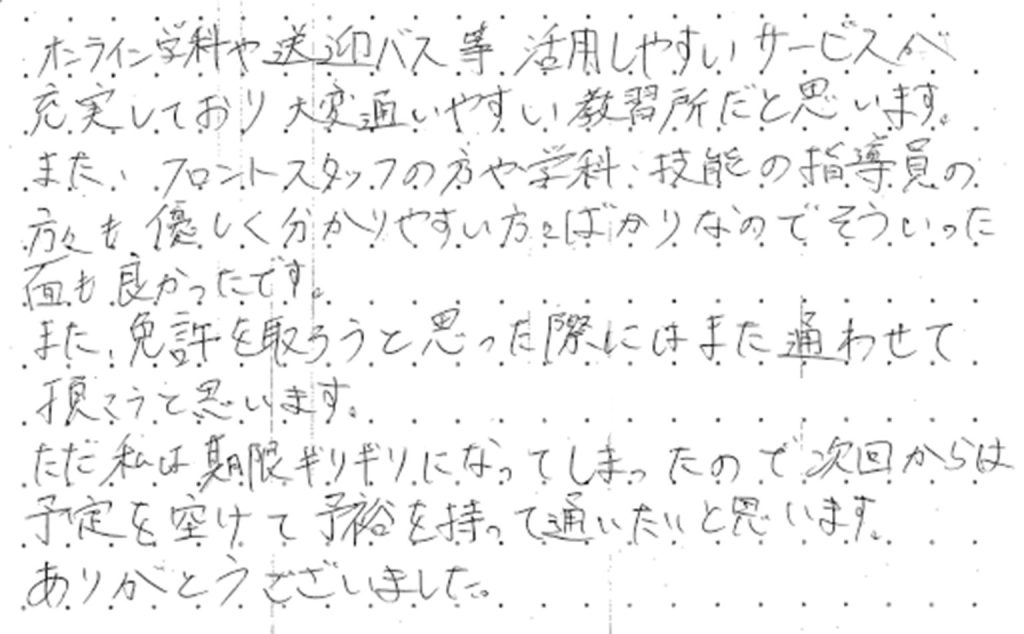 オンライン学科や送迎バス等 活用しやすいサービスが
充実しており大変通いやすい教習所だと思います。
また、フロントスタッフの方や学科・技能の指導員の
方々も優しく分かりやすい方々ばかりなのでそういった
面も良かったです。
また、免許を取ろうと思った際にはまた通わせて
頂こうと思います。
ただ私は期限ギリギリになってしまったので次回からは
予定を空けて予裕を持って通いたいと思います。
ありがとうございました。